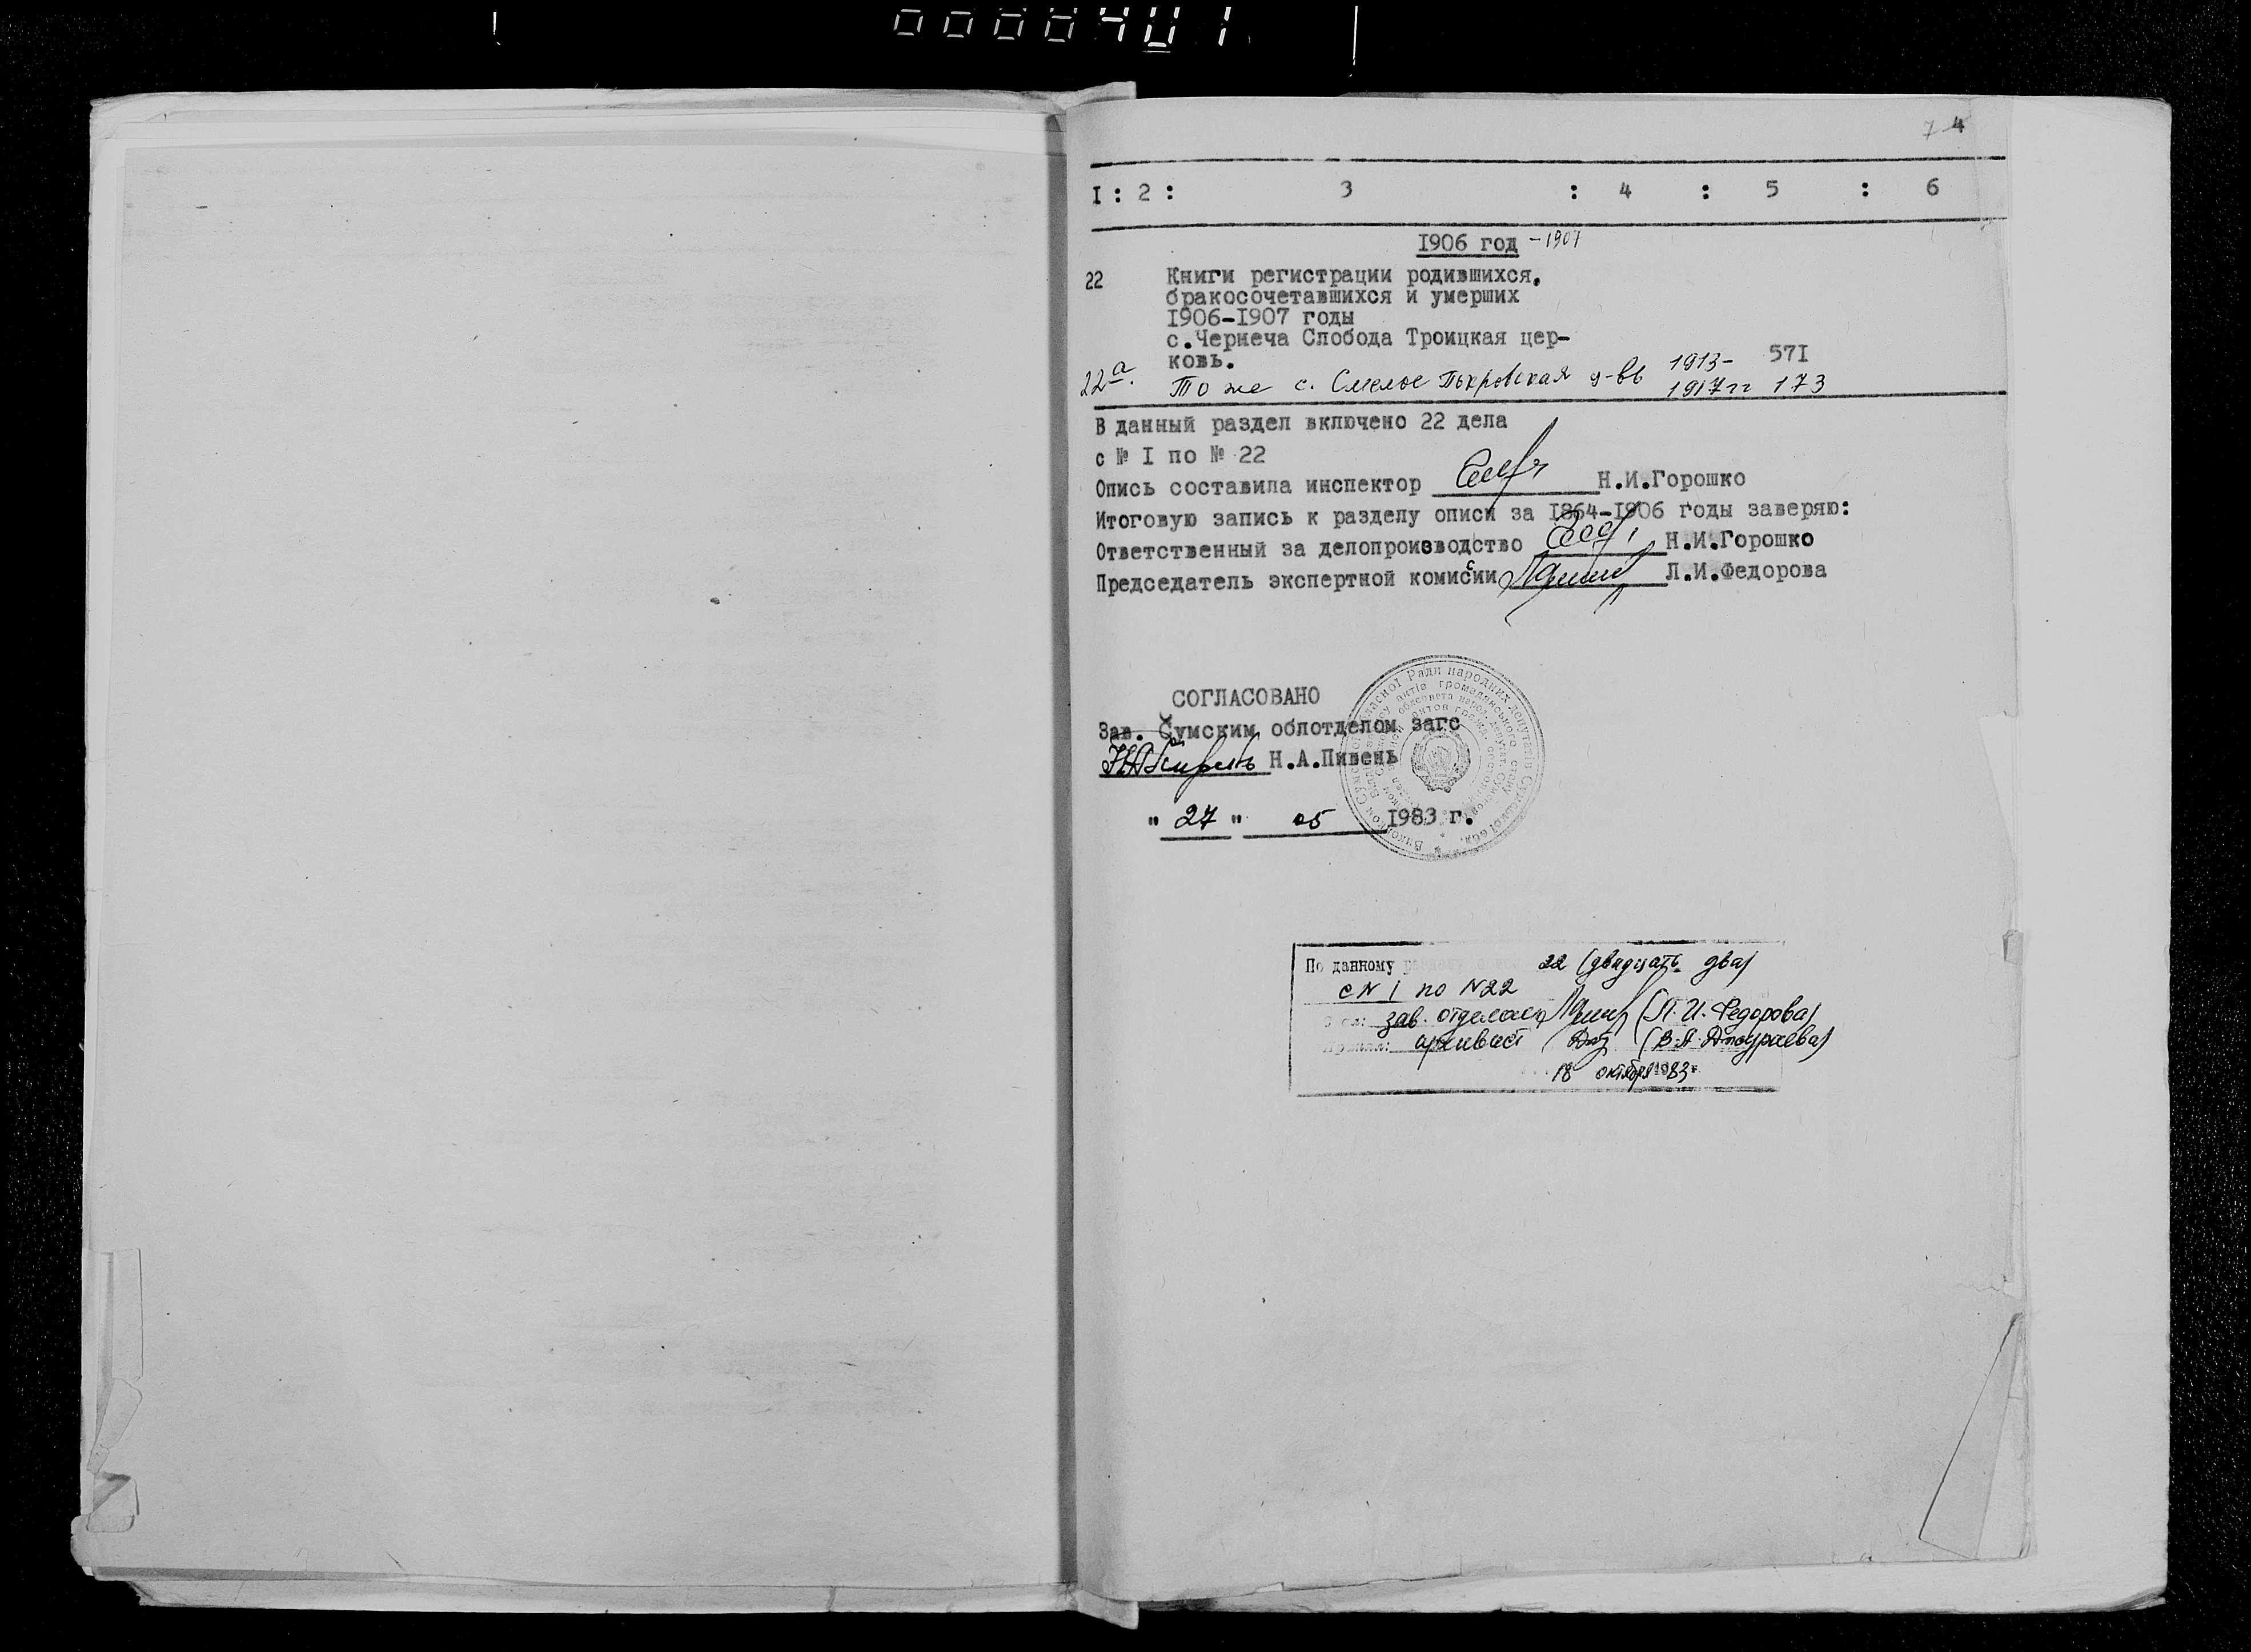 0000401
7 4
I : 2 : 3 : 4 : 5 : 6
I906 год - 1907
22 Книги регистрации родившихся,
бракосочетавшихся и умерших
I906-I907 годы
с.Чернеча Слобода Троицкая цер-
ковь. 57I
22а. То же с. Смелое Покровская ц-вь 1913-1917гг 173
В данный раздел включено 22 дела
с № I по № 22
Опись составила инспектор Н.И.Горошко
Итоговую запись к разделу описи за I864-I906 годы заверяю:
Ответственный за делопроизводство Н.И.Горошко
Председатель экспертной комиссии Л.И.Федорова
СОГЛАСОВАНО
Зав. Сумским облотделом загс
Н.А.Пивень
" 27 " 05 I983 г.
По данному разделу 22 (двадцать два)
с N 1 по N 22
зав. отделом (Л.И. Федорова)
Принял: архивист
18 октября 1983г